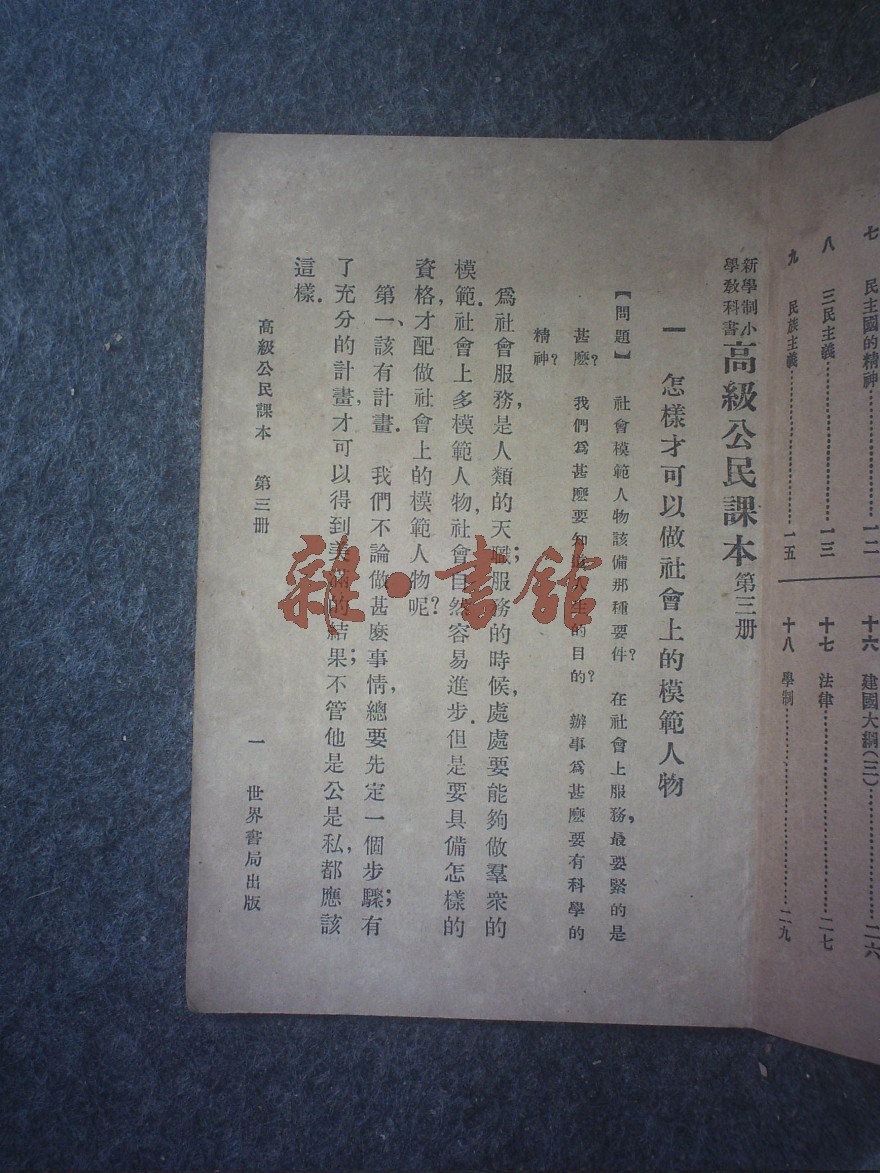 七 民主國的精神……………一二
八 三民主義……………一三
九 民族主義……………一五
十六 建國大綱(三)……………二六
十七 法律……………二七
十八 學制……………二九
新學制小學教科書 高級公民課本 第三册
一 怎樣才可以做社會上的模範人物
【問題】 社會模範人物該備那種要件? 在社會上服務,最要緊的是
甚麽? 我們爲甚麽要知道人生的目的? 辦事爲甚麽要有科學的
精神?
爲社會服務,是人類的天職;服務的時候,處處要能夠做羣衆的
模範.社會上多模範人物,社會自然容易進步.但是要具備怎樣的
資格,才配做社會上的模範人物呢?
第一、該有計畫. 我們不論做甚麽事情,總要先定一個步驟;有
了充分的計畫,才可以得到美滿的結果;不管他是公是私,都應該
這樣.
高級公民課本 第三册 一 世界書局出版
雜·書館